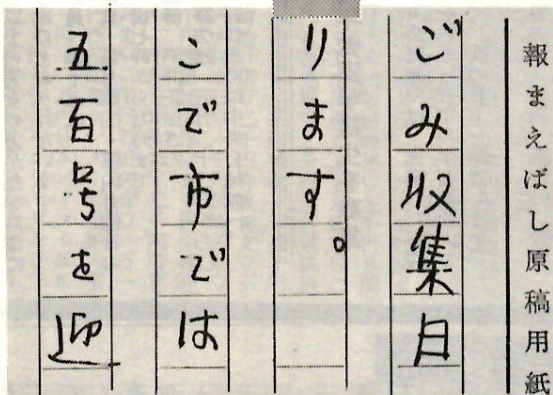 報まえばし原稿用紙
ごみ収集日
ります。
こで市では
五百号を迎